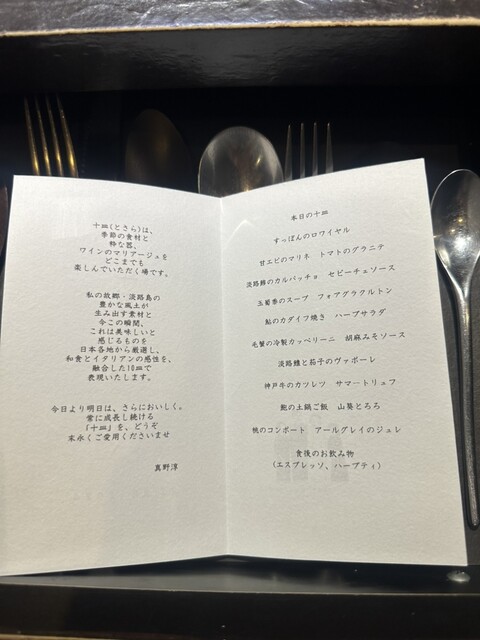 十皿(とさら)は、
季節の食材と
粋な器、
ワインのマリアージュを
どこまでも
楽しんでいただく場です。
私の故郷・淡路島の
豊かな風土が
生み出す素材と
今この瞬間、
これは美味しいと
感じるものを
日本各地から厳選し、
和食とイタリアンの感性を、
融合した10皿で
表現いたします。
今日より明日は、さらにおいしく。
常に成長し続ける
「十皿」を、どうぞ
末永くご愛用くださいませ
真野淳
本日の十皿
すっぽんのロワイヤル
甘エビのマリネ トマトのグラニテ
淡路鯵のカルパッチョ セビーチェソース
玉蜀黍のスープ フォアグラクルトン
鮎のカダイフ焼き ハーブサラダ
毛蟹の冷製カッペリーニ 胡麻みそソース
淡路鱧と茄子のヴァポーレ
神戸牛のカツレツ サマートリュフ
鮑の土鍋ご飯 山葵とろろ
桃のコンポート アールグレイのジュレ
食後のお飲み物
(エスプレッソ、ハーブティ)